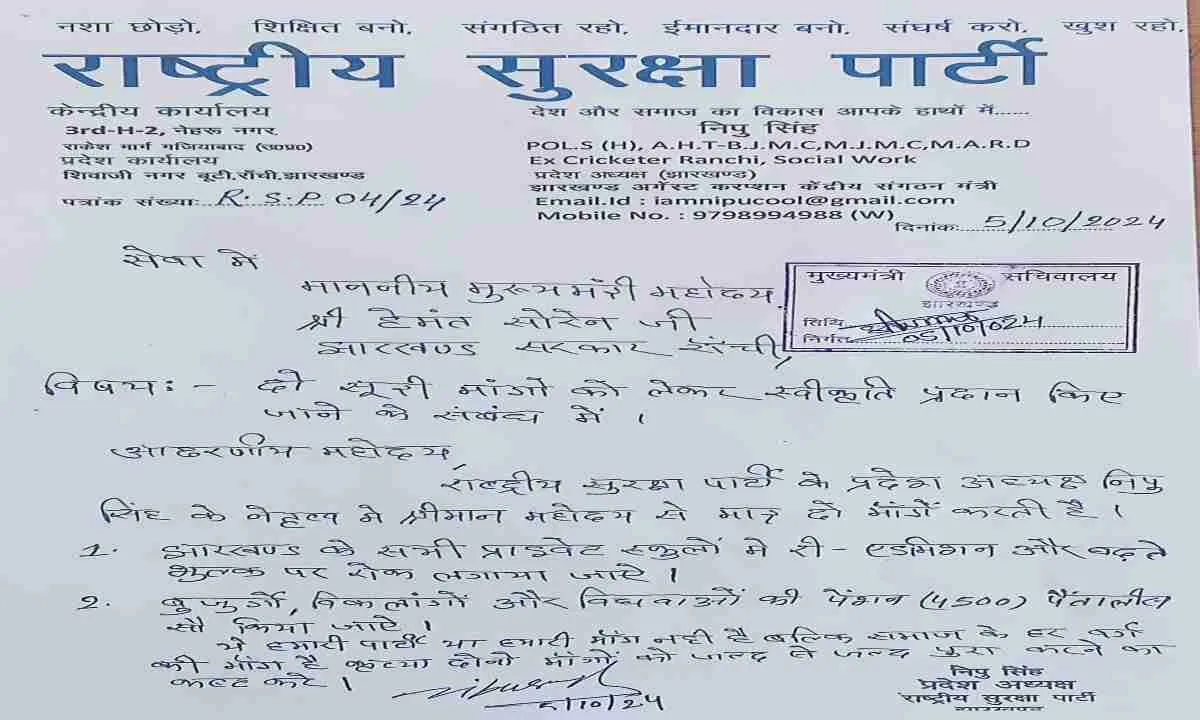 नशा छोड़ो, शिक्षित बनो, संगठित रहो, ईमानदार बनो, संघर्ष करो, खुश रहो,
राष्ट्रीय सुरक्षा पार्टी
केन्द्रीय कार्यालय
3rd-H-2, नेहरू नगर,
राकेश मार्ग गजियाबाद (उ०प्र०)
प्रदेश कार्यालय
शिवाजी नगर बूटी,राँची,झारखण्ड
पत्रांक संख्याः R.S.P 04/24
देश और समाज का विकास आपके हाथों में......
निपु सिंह
POL.S (H), A.H.T-B.J.M.C,M.J.M.C,M.A.R.D
Ex Cricketer Ranchi, Social Work
प्रदेश अध्यक्ष (झारखण्ड)
झारखण्ड अगेंस्ट करप्शन केंद्रीय संगठन मंत्री
Email.Id : iamnipucool@gmail.com
Mobile No. : 9798994988 (W)
दिनांकः 5/10/2024
सेवा में
माननीय मुख्यमंत्री महोदय
श्री हेमंत सोरेन जी
झारखण्ड सरकार राँची,
मुख्यमंत्री सचिवालय
झारखण्ड
तिथि
निर्गत 05/10/024
विषय :- दो सूत्री मांगों को लेकर स्वीकृति प्रदान किए
जाने के संबंध में ।
आदरणीय महोदय,
राष्ट्रीय सुरक्षा पार्टी के प्रदेश अध्यक्ष निपु
सिंह के नेतृत्व मे श्रीमान महोदय से मात्र दो माँगें करती है ।
1. झारखण्ड के सभी प्राइवेट स्कूलों मे री-एडमिशन और बढ़ते
शुल्क पर रोक लगाया जाऐ ।
2. बुजुर्गो, विकलांगों और विधवाओं की पेंशन (4500) पैंतालीस
सौ किया जाऐ ।
ये हमारी पार्टी या हमारी माँग नही है बल्कि समाज के हर वर्ग
की माँग है कृप्या दोनो माँगों को जल्द से जल्द पुरा करने का
कष्ट करे ।
5/10/24
निपु सिंह
प्रदेश अध्यक्ष
राष्ट्रीय सुरक्षा पार्टी
झारखण्ड